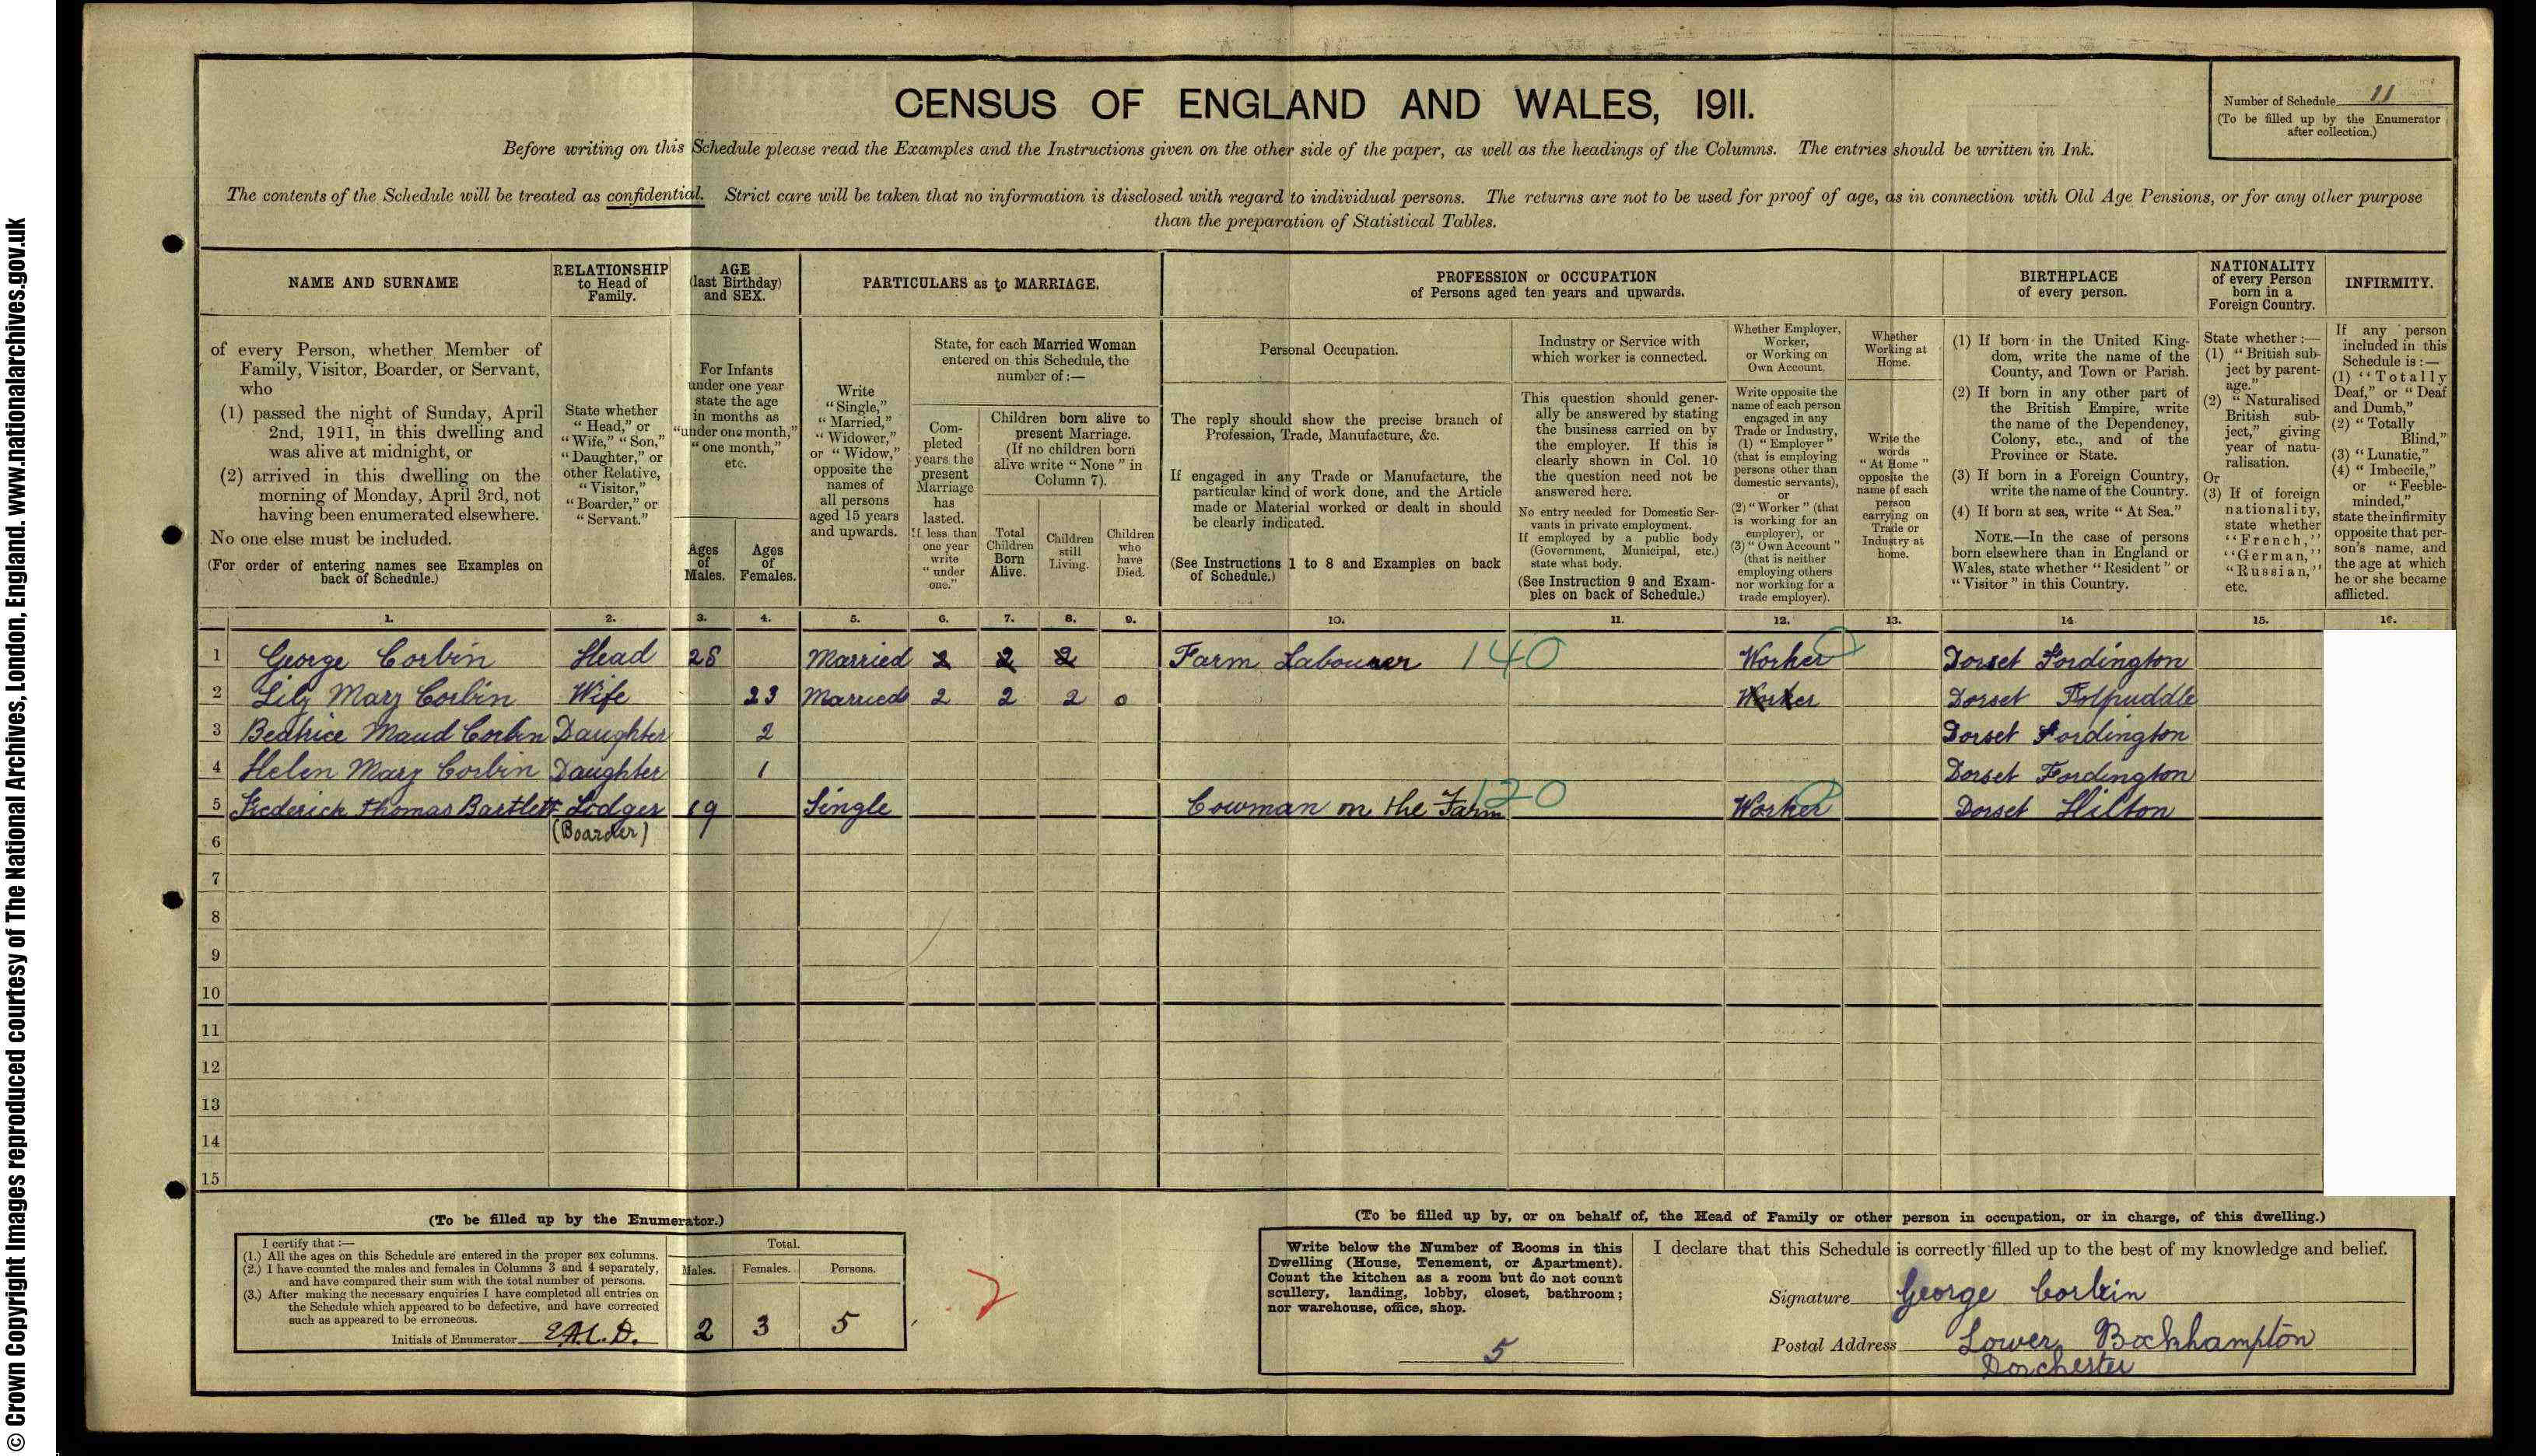 © Crown Copyright Images reproduced courtesy of The National Archives, London, England. www.nationalarchives.gov.uk
CENSUS OF ENGLAND AND WALES, 1911.
Number of Schedule 11
(To be filled up by the Enumerator
after collection.)
Before writing on this Schedule please read the Examples and the Instructions given on the other side of the paper, as well as the headings of the Columns. The entries should be written in Ink.
The contents of the Schedule will be treated as confidential. Strict care will be taken that no information is disclosed with regard to individual persons. The returns are not to be used for proof of age, as in connection with Old Age Pensions, or for any other purpose
than the preparation of Statistical Tables.
NAME AND SURNAME
of every Person, whether Member of
Family, Visitor, Boarder, or Servant,
who
(1) passed the night of Sunday, April
2nd, 1911, in this dwelling and
was alive at midnight, or
(2) arrived in this dwelling on the
morning of Monday, April 3rd, not
having been enumerated elsewhere.
No one else must be included.
(For order of entering names see Examples on
back of Schedule.)
RELATIONSHIP
to Head of
Family.
State whether
"Head," or
"Wife," "Son,"
"Daughter," or
other Relative,
"Visitor,"
"Boarder," or
"Servant."
AGE
(last Birthday)
and SEX.
For Infants
under one year
state the age
in months as
"under one month,"
"one month,"
etc.
Ages
of
Males.
Ages
of
Females.
PARTICULARS as to MARRIAGE.
Write
"Single,"
"Married,"
"Widower,"
or "Widow,"
opposite the
names of
all persons
aged 15 years
and upwards.
State, for each Married Woman
entered on this Schedule, the
number of:—
Com-
pleted
years the
present
Marriage
has
lasted.
If less than
one year
write
"under
one."
Children born alive to
present Marriage.
(If no children born
alive write "None" in
Column 7).
Total
Children
Born
Alive.
Children
still
Living.
Children
who
have
Died.
PROFESSION or OCCUPATION
of Persons aged ten years and upwards.
Personal Occupation.
The reply should show the precise branch of
Profession, Trade, Manufacture, &c.
If engaged in any Trade or Manufacture, the
particular kind of work done, and the Article
made or Material worked or dealt in should
be clearly indicated.
(See Instructions 1 to 8 and Examples on back
of Schedule.)
Industry or Service with
which worker is connected.
This question should gener-
ally be answered by stating
the business carried on by
the employer. If this is
clearly shown in Col. 10
the question need not be
answered here.
No entry needed for Domestic Ser-
vants in private employment.
If employed by a public body
(Government, Municipal, etc.)
state what body.
(See Instruction 9 and Exam-
ples on back of Schedule.)
Whether Employer,
Worker,
or Working on
Own Account.
Write opposite the
name of each person
engaged in any
Trade or Industry,
(1) "Employer"
(that is employing
persons other than
domestic servants),
or
(2) "Worker" (that
is working for an
employer), or
(3) "Own Account"
(that is neither
employing others
nor working for a
trade employer).
Whether
Working at
Home.
Write the
words
"At Home"
opposite the
name of each
person
carrying on
Trade or
Industry at
home.
BIRTHPLACE
of every person.
(1) If born in the United King-
dom, write the name of the
County, and Town or Parish.
(2) If born in any other part of
the British Empire, write
the name of the Dependency,
Colony, etc., and of the
Province or State.
(3) If born in a Foreign Country,
write the name of the Country.
(4) If born at sea, write "At Sea."
NOTE.—In the case of persons
born elsewhere than in England or
Wales, state whether "Resident" or
"Visitor" in this Country.
NATIONALITY
of every Person
born in a
Foreign Country.
State whether:—
(1) "British sub-
ject by parent-
age."
(2) "Naturalised
British sub-
ject," giving
year of natu-
ralisation.
Or
(3) If of foreign
nationality,
state whether
"French,"
"German,"
"Russian,"
etc.
INFIRMITY.
If any person
included in this
Schedule is:—
(1) "Totally
Deaf," or "Deaf
and Dumb,"
(2) "Totally
Blind,"
(3) "Lunatic,"
(4) "Imbecile,"
or "Feeble-
minded,"
state the infirmity
opposite that per-
son's name, and
the age at which
he or she became
afflicted.
1. 2. 3. 4. 5. 6. 7. 8. 9. 10. 11. 12. 13. 14 15. 16.
1 George Corbin Head 28 Married 2 2 2 Farm Labourer 140 Worker Dorset Fordington
2 Lily Mary Corbin Wife 23 Married 2 2 2 0 Worker Dorset Tolpuddle
3 Beatrice Maud Corbin Daughter 2 Dorset Fordington
4 Helen Mary Corbin Daughter 1 Dorset Fordington
5 Frederick Thomas Bartlett Lodger 19 Single Cowman on the Farm 120 Worker Dorset Hilton
(Boarder)
6
7
8
9
10
11
12
13
14
15
(To be filled up by the Enumerator.)
I certify that:—
(1.) All the ages on this Schedule are entered in the proper sex columns.
(2.) I have counted the males and females in Columns 3 and 4 separately,
and have compared their sum with the total number of persons.
(3.) After making the necessary enquiries I have completed all entries on
the Schedule which appeared to be defective, and have corrected
such as appeared to be erroneous.
Initials of Enumerator
Total.
Males. Females. Persons.
2 3 5
2
(To be filled up by, or on behalf of, the Head of Family or other person in occupation, or in charge, of this dwelling.)
Write below the Number of Rooms in this
Dwelling (House, Tenement, or Apartment).
Count the kitchen as a room but do not count
scullery, landing, lobby, closet, bathroom;
nor warehouse, office, shop.
5
I declare that this Schedule is correctly filled up to the best of my knowledge and belief.
Signature George Corbin
Postal Address Lower Bockhampton
Dorchester